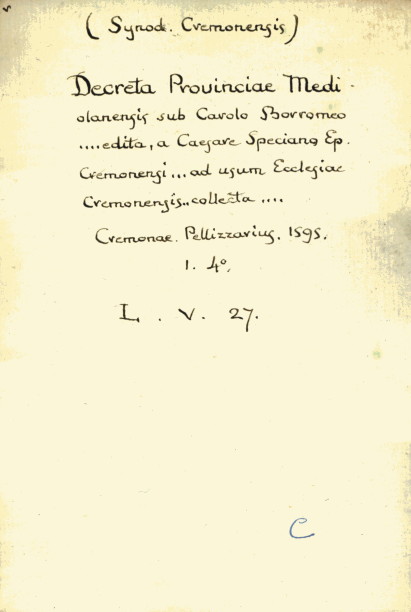 (Synod. Cremonensis)
Decreta Provinciae Medi-
olanensis sub Carolo Borromeo
....edita, a Caesare Speciano Ep.
Cremonensi...ad usum Ecclesiae
Cremonensis..collecta ....
Cremonae. Pellizzarius. 1595.
1. 4º.
L. V. 27.
C